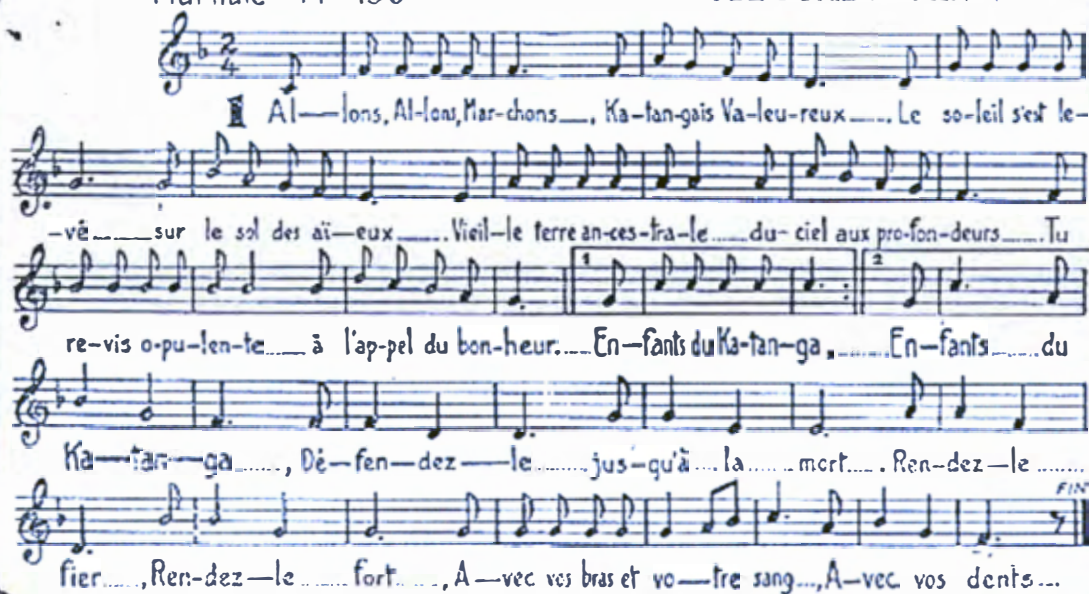 2
4
I Al—lons, Al-lons, Mar-chons__, Ka-tan-gais Va-leu-reux__. Le so-leil s'est le-
-vé____sur le sol des aï—eux____. Vieil-le terre an-ces-tra-le____du-ciel aux pro-fon-deurs____. Tu
1 2
re-vis o-pu-len-te____à l'ap-pel du bon-heur.____En—fants du Ka-tan-ga.____En—fants____du
Ka—tan—ga____, Dé—fen—dez—le____jus-qu'à____la____mort____. Ren-dez—le____
FIN
fier____, Ren-dez—le____fort____, A—vec vos bras et vo—tre sang____, A—vec vos dents____